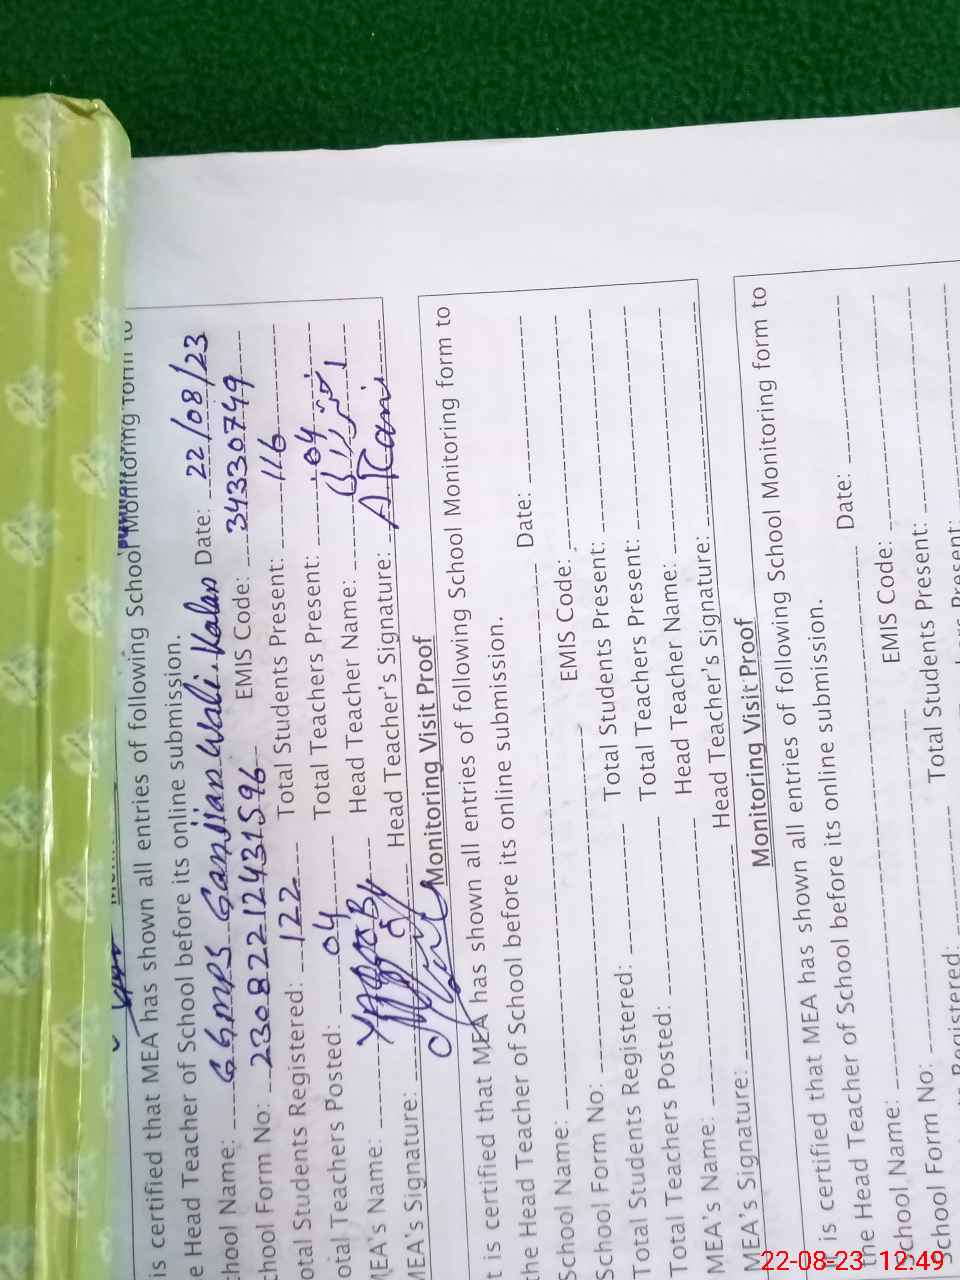 is certified that MEA has shown all entries of following School Monitoring form to
e Head Teacher of School before its online submission.
chool Name: GGMPS Ganjian Wali Kalan Date: 22/08/23
chool Form No: 23082212431596 EMIS Code: 34330749
otal Students Registered: 122 Total Students Present: 116
otal Teachers Posted: 04 Total Teachers Present: 04
MEA's Name: Head Teacher Name:
MEA's Signature: Head Teacher's Signature:
Monitoring Visit Proof
t is certified that MEA has shown all entries of following School Monitoring form to
the Head Teacher of School before its online submission.
School Name: Date:
School Form No: EMIS Code:
Total Students Registered: Total Students Present:
Total Teachers Posted: Total Teachers Present:
MEA's Name: Head Teacher Name:
MEA's Signature: Head Teacher's Signature:
Monitoring Visit Proof
It is certified that MEA has shown all entries of following School Monitoring form to
the Head Teacher of School before its online submission.
School Name: Date:
School Form No: EMIS Code:
Registered: Total Students Present:
Present:
22-08-23 12:49